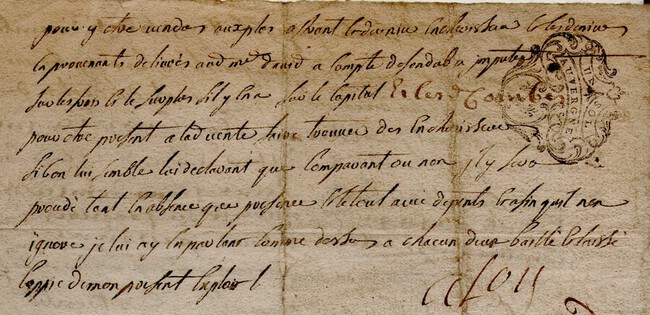 pour y etre vendus au plus offrant et dernier encherisseur et les deniers
en provenants delivrés aud me david a compte
sur les frais et le surplus s'il y en a sur le capital
pour etre present a lad vente faire trouver des encherisseurs
si bon lui semble lui declarant que comparant ou non il y sera
procedé tant en absence que presence et le tout avec depents et afin quil nen
ignore je lui ay en parlant comme dessus a chacun deux baillé et laissé
coppie de mon present exploit
SOL
AUVERGNE